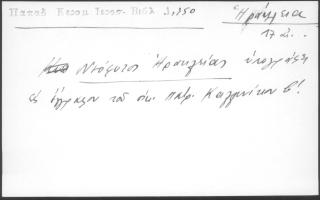 Παπαδ Κεραμ Ιεροσ. Βιβλ 3,150
Ἡράκλεια
17 αἰ.
Νεόφυτος Ἡρακλείας ὑπογράφει
εἰς ἔγγραφον τοῦ οἰκ. πατρ. Καλλινίκου Β!